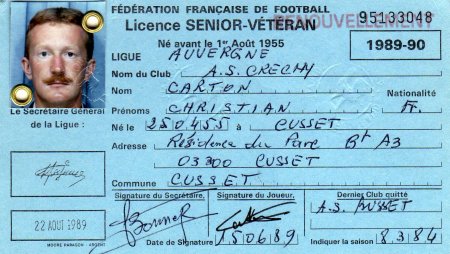 FÉDÉRATION FRANÇAISE DE FOOTBALL
Licence SENIOR-VÉTÉRAN
RENOUVELLEMENT
95133048
Né avant le 1er Août 1955
1989-90
LIGUE AUVERGNE
Nom du Club A.S. CRECHY
Nom CARTON
Nationalité
Prénoms CHRISTIAN
Fr.
Né le 250455 à CUSSET
Adresse Résidence du Parc Bt A3
03300 CUSSET
Commune CUSSET
Le Secrétaire Général
de la Ligue :
22 AOUT 1989
MOORE PARAGON - ARGENT
Signature du Secrétaire,
Signature du Joueur,
Date de Signature 150689
Dernier Club quitté
A.S. CUSSET
Indiquer la saison 8.3.84